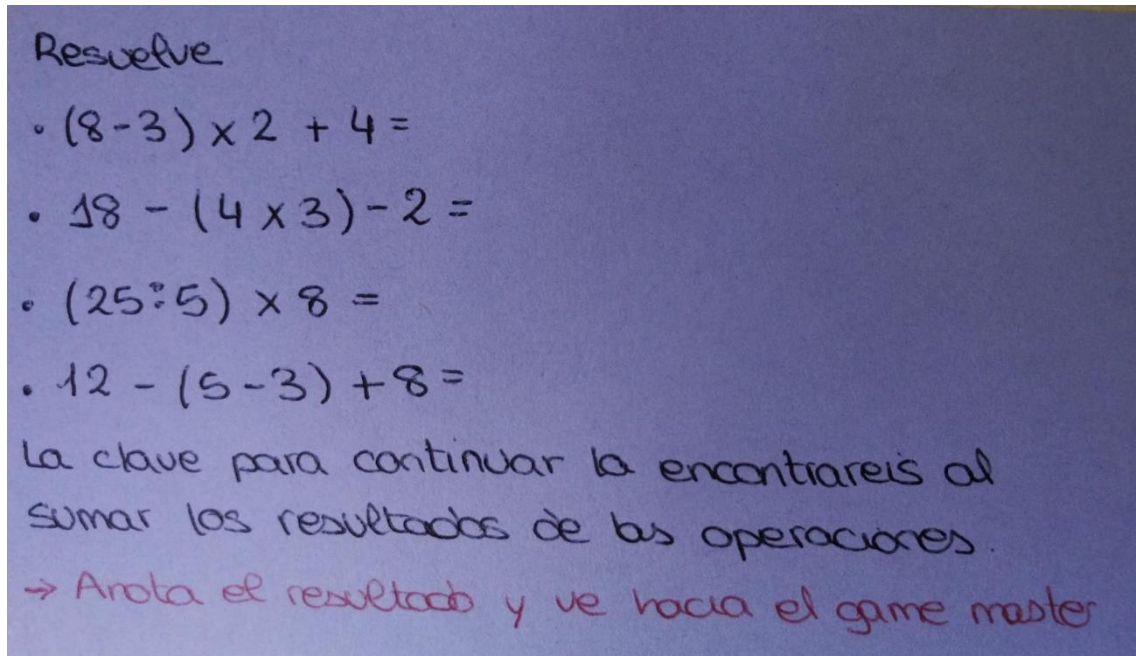 Resuelve
• (8-3) x 2 + 4 =
• 18 - (4 x 3) - 2 =
• (25:5) x 8 =
• 12 - (5-3) + 8 =
La clave para continuar la encontrareis al
sumar los resultados de las operaciones.
→ Anota el resultado y ve hacia el game master